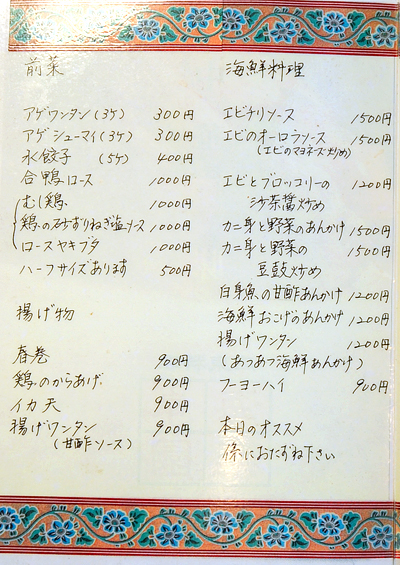 前菜
アゲワンタン(3ケ) 300円
アゲシューマイ(3ケ) 300円
水餃子(5ケ) 400円
合鴨ロース 1000円
むし鶏 1000円
鶏の砂ずりねぎ塩ソース 1000円
ロースヤキブタ 1000円
ハーフサイズあります 500円
揚げ物
春巻 900円
鶏のからあげ 900円
イカ天 900円
揚げワンタン 900円
(甘酢ソース)
海鮮料理
エビチリソース 1500円
エビのオーロラソース 1500円
(エビのマヨネーズ炒め)
エビとブロッコリーの 1200円
沙茶醤炒め
カニ身と野菜のあんかけ 1500円
カニ身と野菜の 1500円
豆鼓炒め
白身魚の甘酢あんかけ 1200円
海鮮おこげのあんかけ 1200円
揚げワンタン 1200円
(あつあつ海鮮あんかけ)
フーヨーハイ 900円
本日のオススメ
係におたずね下さい